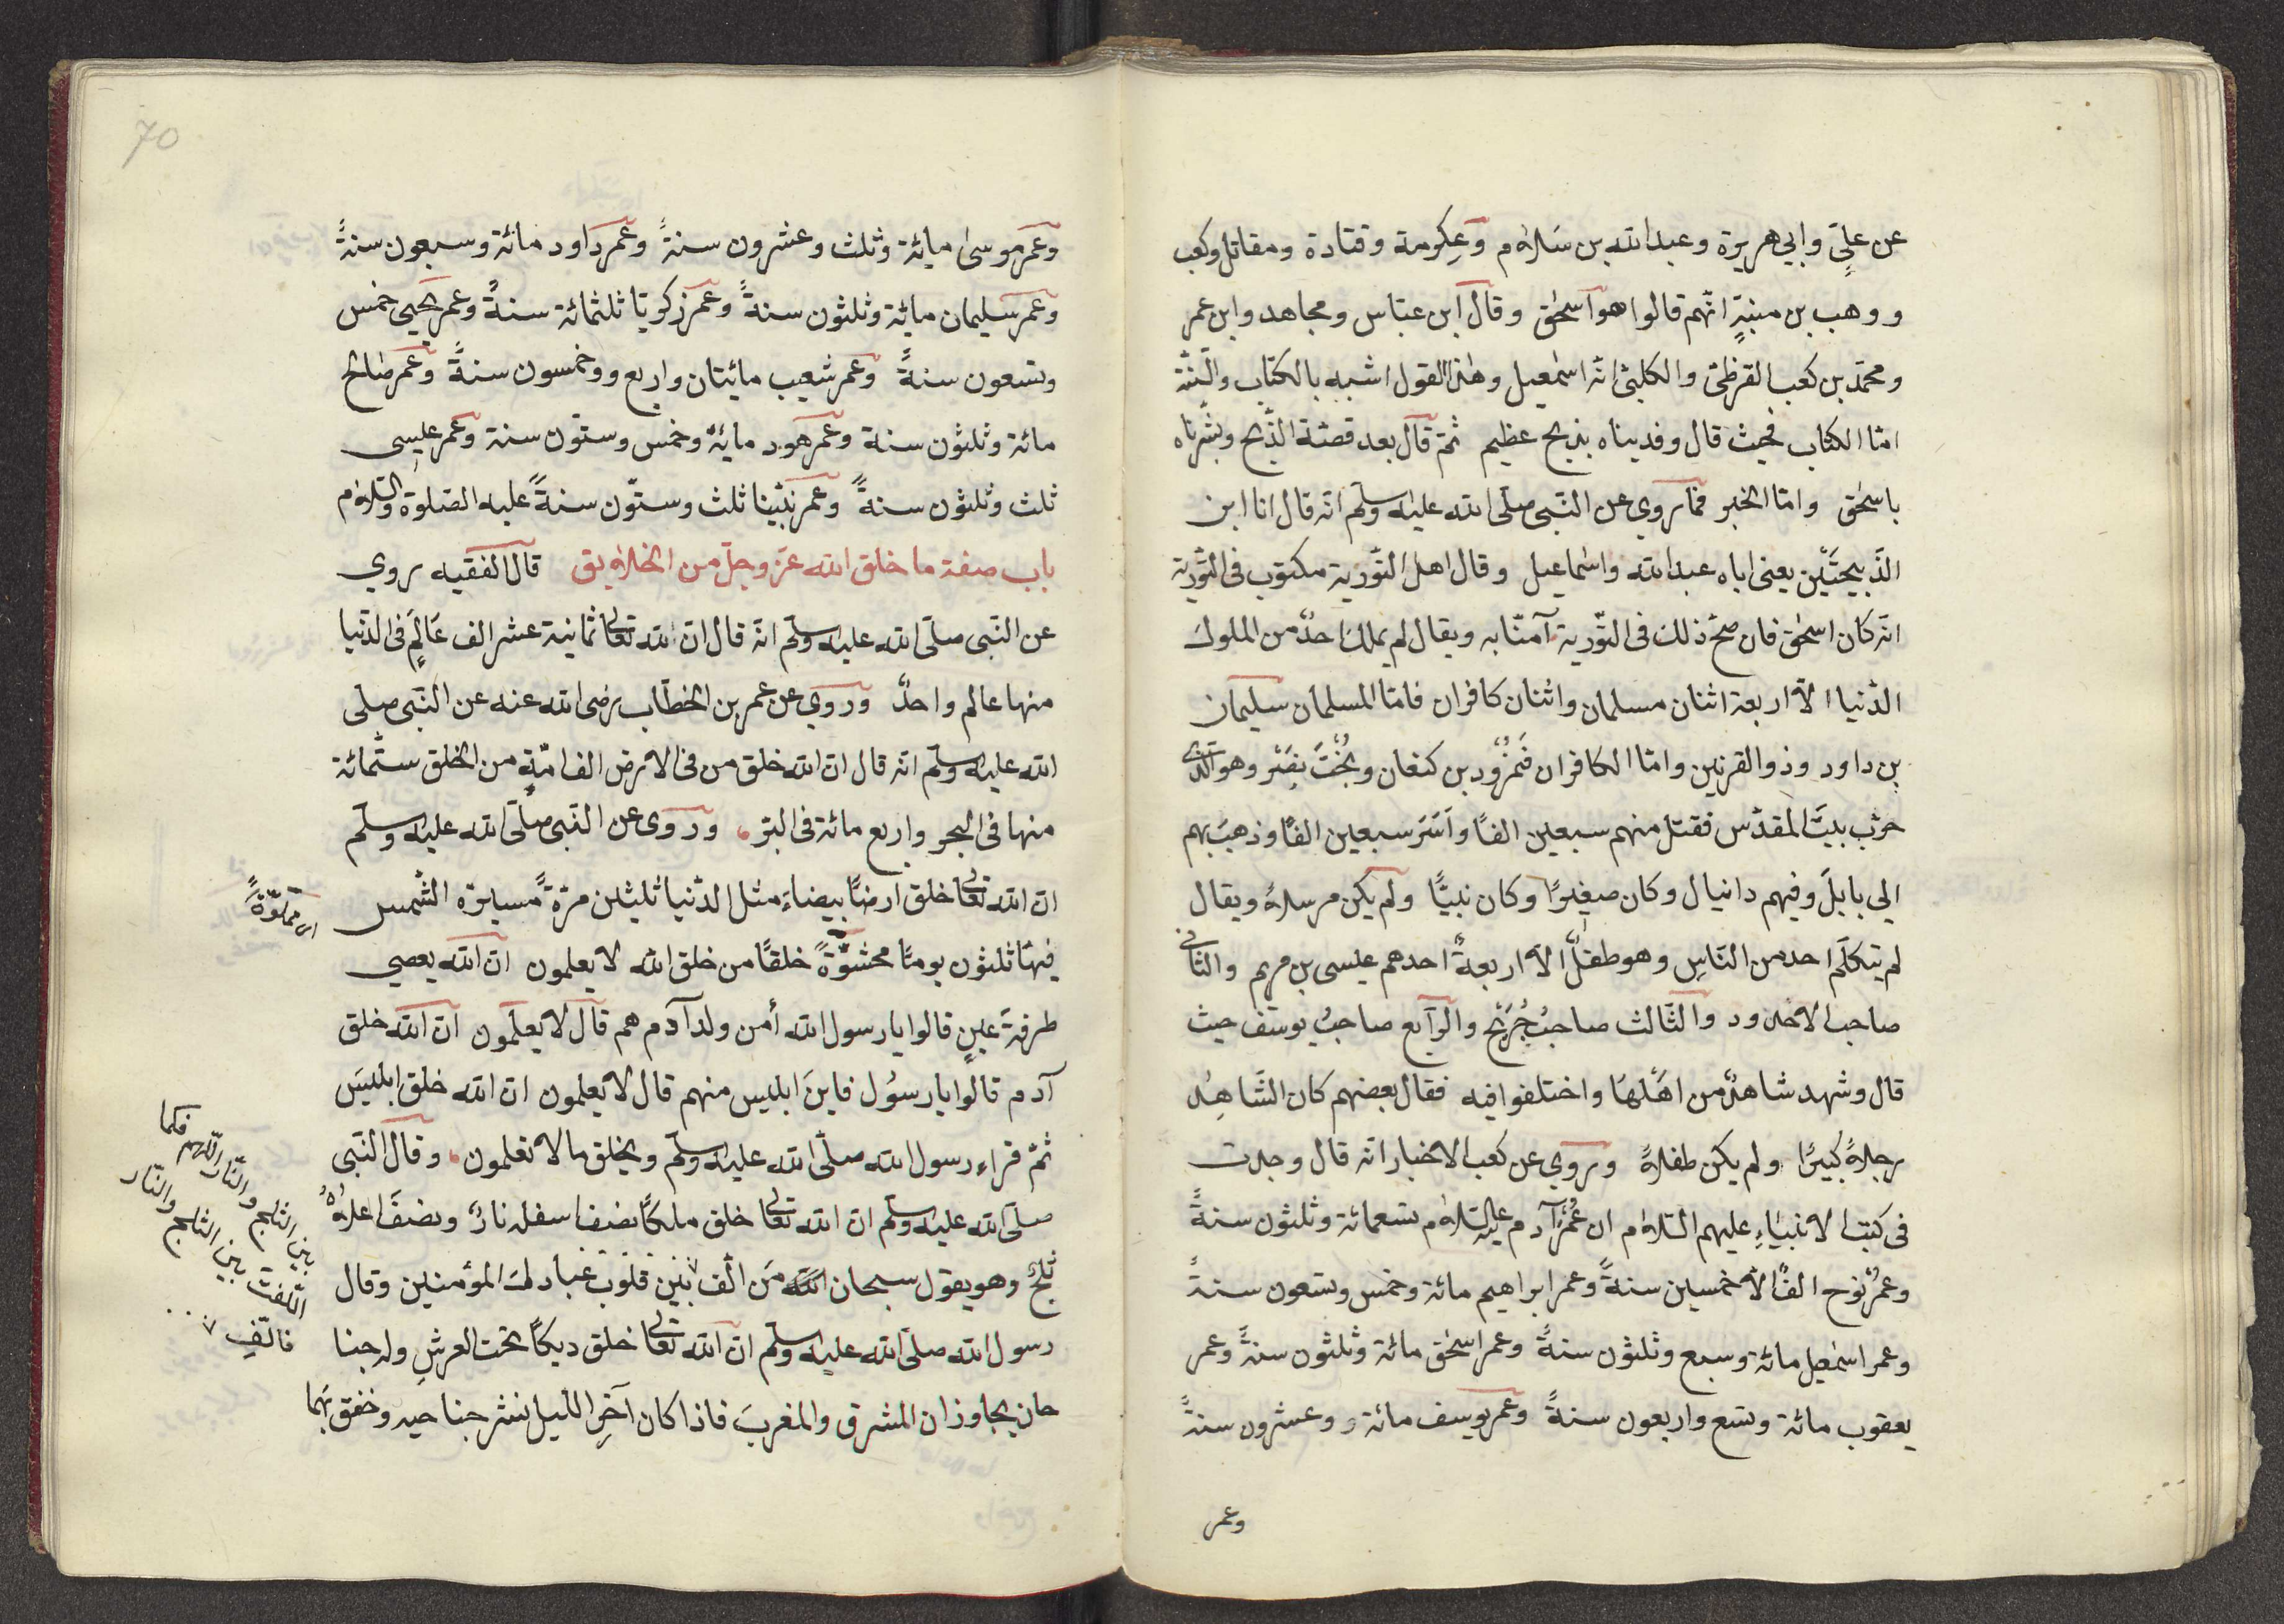 عن عليٍّ وابي هريرة وعبد الله بن سَلاٰم وعِكرمة وقتادة ومقاتل وكعب
ووهب بن منبّهٍ انّهم قالوا هو اسحٰق وقال ابن عبّاس ومجاهد وابن عمر
ومحمّد بن كعب القرظيّ والكلبيّ انّه اسمٰعيل وهٰذا القول اشبه بالكتاب والسّنّة
امّا الكتاب فحيث قال وفديناه بذبح عظيم ثمّ قال بعد قصّة الذّبح وبشّرناه
باسحٰق وامّا الخبر فما روي عن النّبى صلّى الله عليه وسلّم انّه قال انا ابن
الذّبيحَيْن يعنى اباه عبد الله واسماعيل وقال اهل التّورية مكتوب فى التّورية
انّه كان اسحٰق فان صحّ ذلك فى التّورية آمنّا به ويقال لم يملك احدٌ من الملوك
الدّنيا الّا اربعة اثنان مسلمان واثنان كافران فامّا المسلمان سليمان
بن داود وذو القرنين وامّا الكافران فنمرُود بن كنعان وبُخْتَ نصّر وهو الّذى
خرّب بيتَ المقدّس فقتل منهم سبعين الفًا واَسَرَ سبعين الفًا وذهب بهم
الي بابلَ وفيهم دانيال وكان صغيرًا وكان نبيًّا ولم يكن مرسلاً ويقال
لم يتكلّم احد من النّاسِ وهو طفلٌ الّا اربعةٌ احدهم عيسى بن مريم والثّانى
صاحب الاخدود والثّالث صاحبُ جُرَيْجٍ والرّابع صاحبُ يوسف حيث
قال وشهد شاهدٌ من اهْلهَا واختلفوا فيه فقال بعضهم كان الشّاهِد
رجلاً كبيرًا ولم يكن طفلاً وروي عن كعب الاخبار انّه قال وجدت
فى كتب الانبيٰاءِ عليهم السّلام ان عُمُرَ آدم عليه السّلاٰم تسعمائة وثلثون سنةً
وعمرُ نوح الفًا الّا خمسين سنةً وعمر ابراهيم مائة وخمس وتسعون سنةً
وعمر اسمٰعيل مائة وسبع وثلثون سنةً وعمر اسحٰق مائة وثلثون سنةً وعمر
يعقوب مائة وتسع واربعون سنةً وعمر يوسف مائة وعشرون سنةً
وعمر
70
وعمر موسىٰ مائة وثلث وعشرون سنةً وعمر داود مائة وسبعون سنةً
وعمر سليمان مائة وثلثون سنةً وعمر زكريّا ثلثمائة سنةً وعمر يحيي خمس
وتسعون سنةً وعمر شعيب مائيتان واربع ووخمسون سنةً وعمر صٰالح
مائة وثلثون سنة وعمر هود مائة وخمس وستون سنة وعمر عيسى
ثلث وثلثون سنةً وعمر نبيّنا ثلث وستّون سنةً عليه الصّلوة والسّلاٰم
باب صفة ما خلق الله عزّ وجلّ من الخلاٰيق قال الفقيه روي
عن النّبى صلّى الله عليه وسلّم انّه قال انّ لله تعالى ثمانية عشر الف عَالمٍ فى الدّنيا
منها عالم واحدٌ وروي عن عمر بن الخطّاب رضى الله عنه عن النّبى صلّى
الله عليه وسلّم انّه قال انّ الله خلق من فى الارض الف امّةٍ من الخلق ستّمائة
منها فى البحر واربع مائة فى البرّ وروى عن النّبى صلّى الله عليه وسلّم
انّ الله تعالى خلق ارضًا بيضاءَ مثل الدّنيا ثلثين مرّةً مسيرة الشّمس
فيها ثلثون يومًا محشوّةً خلقًا من خلق الله لا يعلمون انّ الله يعصي
طرفةَ عينٍ قالوا يا رسول الله أمن ولد آدم هم قال لا يعلمون انّ الله خلق
آدم قالوا يا رسُول فاينَ ابليس منهم قال لا يعلمون انّ الله خلق ابليسَ
ثمّ قراء رسول الله صلّى الله عليه وسلّم ويخلق ما لا تعلمون وقال النّبى
صلّى الله عليه وسلّم انّ الله تعالى خلق ملكًا نصف اسفله نارٌ ونصفَ اعلاهُ
ثلجٌ وهو يقول سبحان الله مَن الّف بين قلوب عبادك المؤمنين وقال
رسول الله صلّى الله عليه وسلّم انّ الله تعالى خلق ديكًا تحت العرشِ وله جنا
حان يجاوزان المشرق والمغربَ فاذا كان آخرِ اللّيل نشر جناحيه وخفق بهما
اى مملوّةً
بين الثلج والنّار اللّهم فكما
الّفت بين الثلج والنّار
فالّفِ